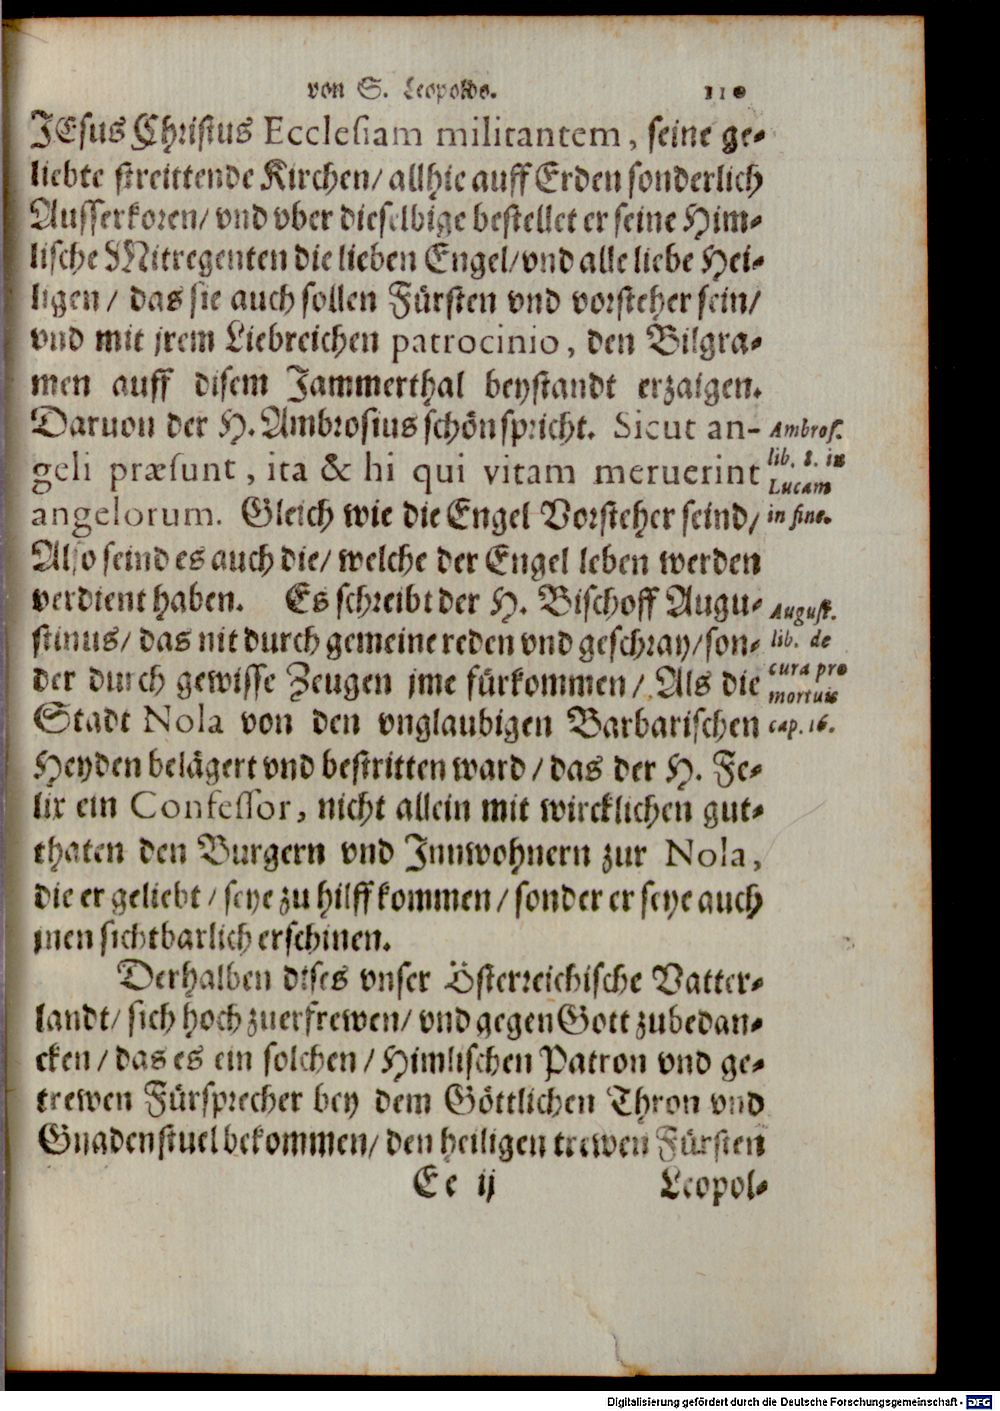 von S. Leopoldo. 110
JEsus Christus Ecclesiam militantem, seine ge-
liebte streittende Kirchen/ allhie auff Erden sonderlich
Ausserkoren/ vnd vber dieselbige bestellet er seine Him-
lische Mitregenten die lieben Engel/ vnd alle liebe Hei-
ligen/ das sie auch sollen Fürsten vnd vorsteher sein/
vnd mit jrem Liebreichen patrocinio, den Bilgra-
men auff disem Jammerthal beystandt erzaigen.
Daruon der H. Ambrosius schön spricht. Sicut an- Ambros.
geli præsunt, ita & hi qui vitam meruerint lib. 8. in Lucam
angelorum. Gleich wie die Engel Vorsteher seind/ in fine.
Also seind es auch die/ welche der Engel leben werden
verdient haben. Es schreibt der H. Bischoff Augu- August.
stinus/ das nit durch gemeine reden vnd geschray/ son- lib. de
der durch gewisse Zeugen jme fürkommen/ Als die cura pro mortuis
Stadt Nola von den vnglaubigen Barbarischen cap. 16.
Heyden belägert vnd bestritten ward/ das der H. Fe-
lix ein Confessor, nicht allein mit wircklichen gut-
thaten den Burgern vnd Innwohnern zur Nola,
die er geliebt/ seye zu hilff kommen/ sonder er seye auch
jnen sichtbarlich erschinen.
Derhalben dises vnser Österreichische Vatter-
landt/ sich hoch zuerfrewen/ vnd gegen Gott zubedan-
cken/ das es ein solchen/ Himlischen Patron vnd ge-
trewen Fürsprecher bey dem Göttlichen Thron vnd
Gnadenstuel bekommen/ den heiligen trewen Fürsten
Ee ij Leopol-
Digitalisierung gefördert durch die Deutsche Forschungsgemeinschaft - DFG